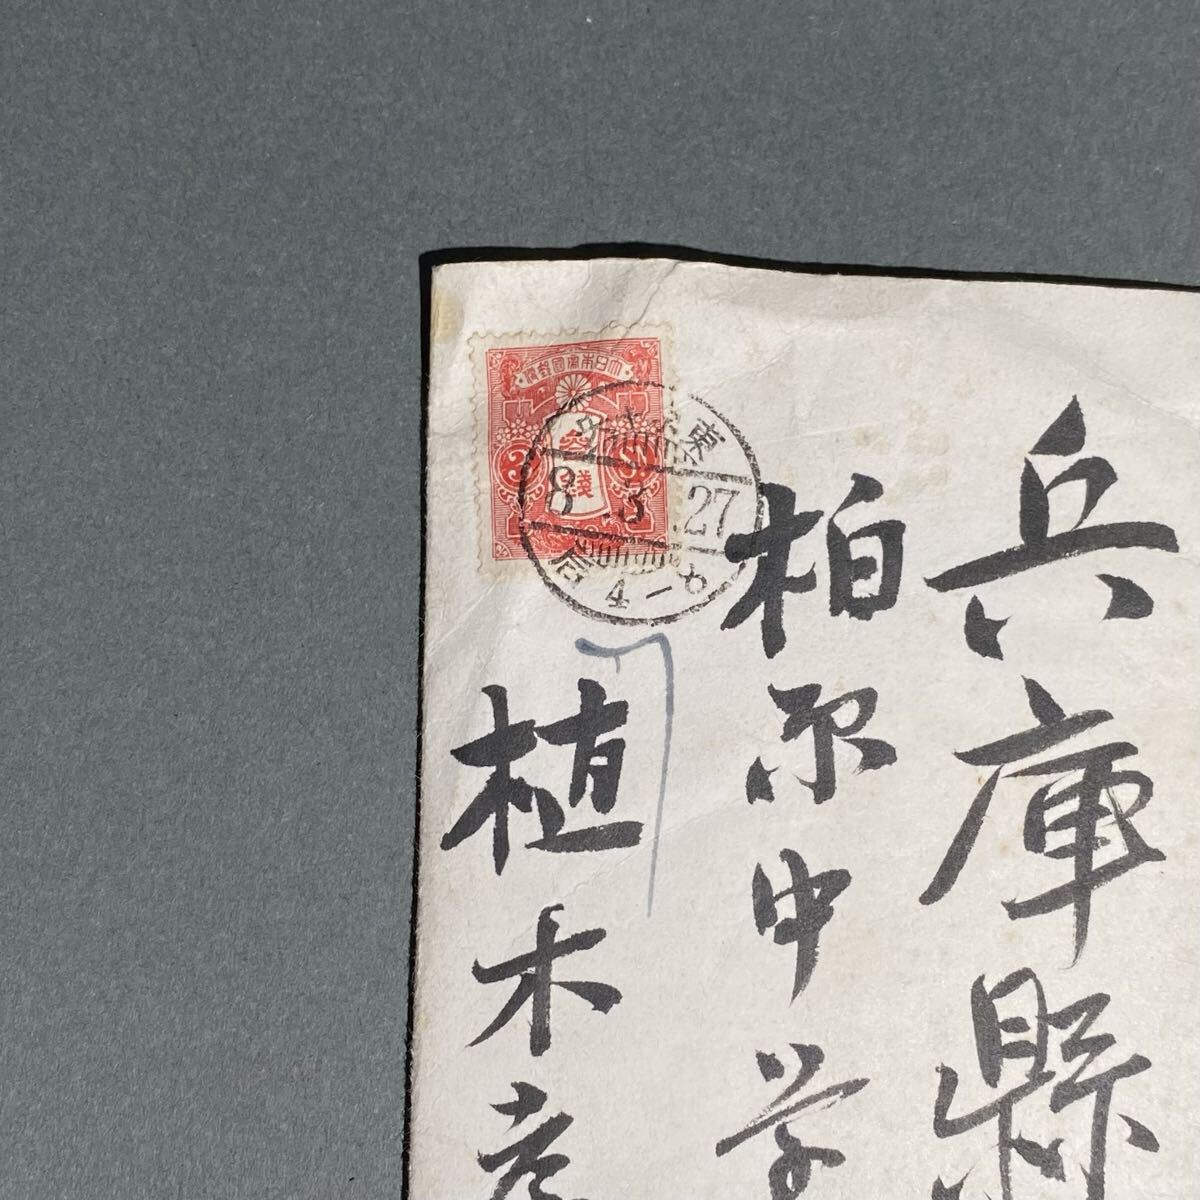 兵庫縣
柏原中学
植木彦
大日本帝國郵便
參錢
3 Sn.
東
8.3.27
后 4-6